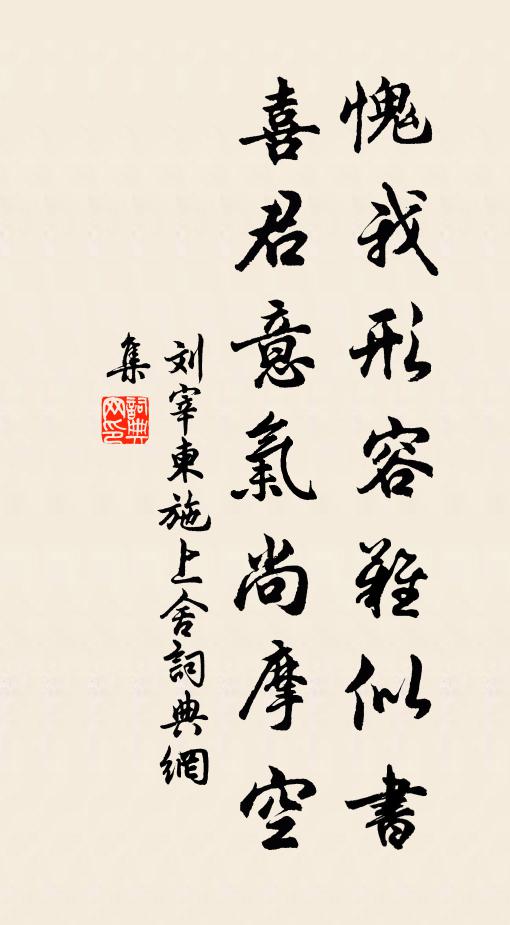 愧我形容難似書
喜君意氣尚摩空
刘宰東施上舍詞典網
集
詞典网印